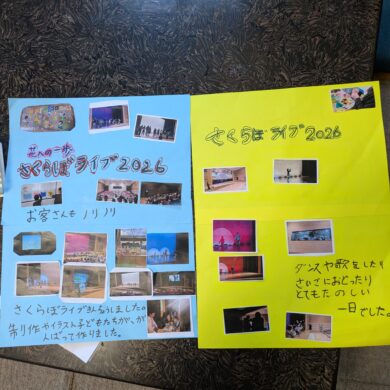 花への一歩
さくらぼライブ2026
お客さんもノリノリ
さくらぼライブさんかしました。
制作やイラスト子どもたちが、が
んばって作りました。
さくらぼライブ2026
ダンスや歌をしたり
さいごにおどったり
とてもたのしい
一日でした。